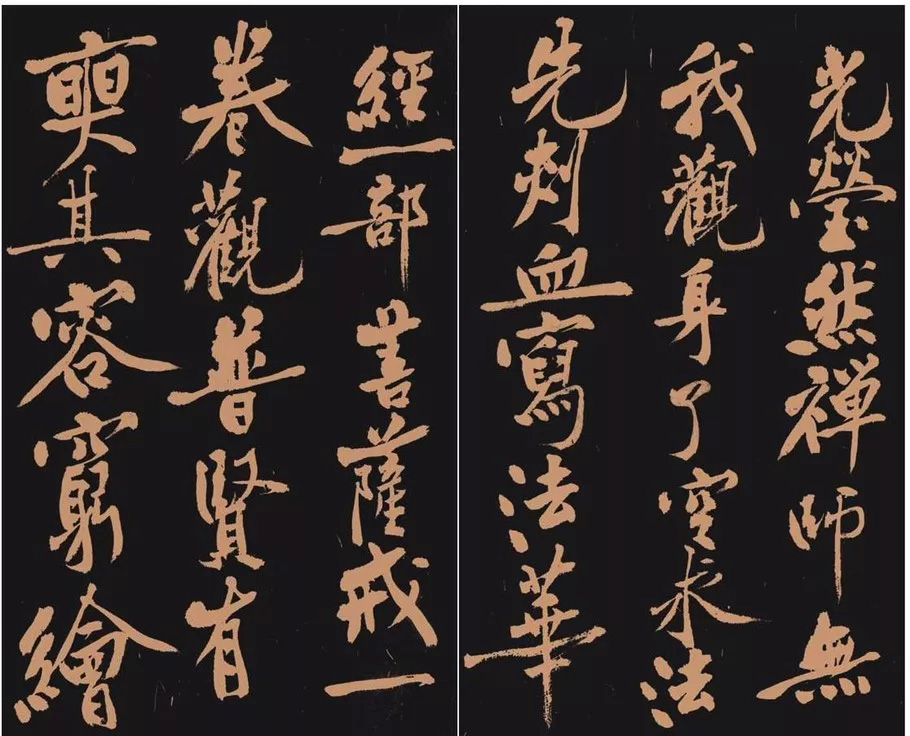 光瑩然禪師無
我觀身了空求法
先刺血寫法華
經一部菩薩戒一
卷觀普賢有
奭其容窮繪